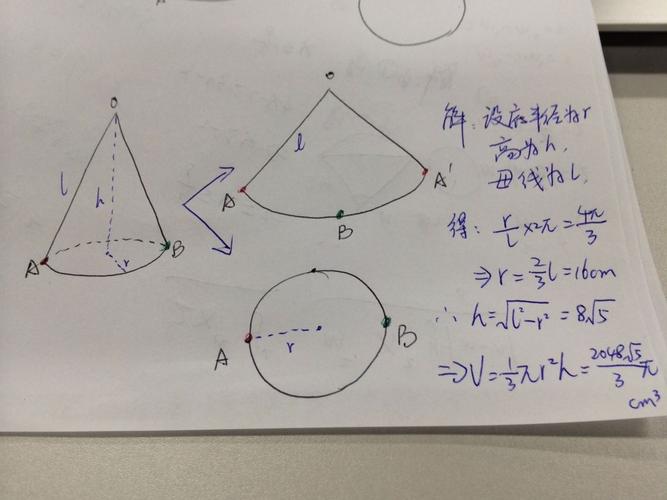 O
l
h
A
B
r
O
l
A
A'
B
A
r
B
解:设底半径为r
高为h,
母线为l,
得: r/l ×2π = 4π/3
⇒ r = 2/3 l = 16cm
∴ h = √(l²-r²) = 8√5
⇒ V = 1/3 πr²h = 2048√5/3 π
cm³